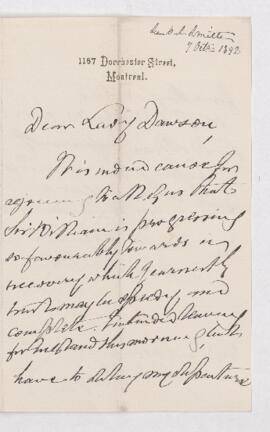 Sir D. A. Smith
7 Oct. 1892
1157 Dorchester Street,
Montreal.
Dear Lady Dawson,
It is indeed cause for
rejoicing to all of us that
Sir William is progressing
so favourably towards a
recovery which I earnestly
trust may be speedy and
complete. I intended leaving
for England this morning, but
have to delay my departure